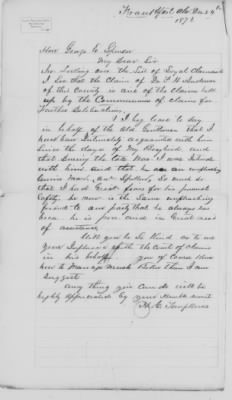 Frankfort Ala Dec 24th
187
Hon. George E. Spencer
My Dear Sir
In looking over the list of Loyal Claimants
I see that the Claim of H Anderson
of this County is one of the Claims laid
up by the Commissioners of Claims for
Further
I beg leave to Say
in behalf of the Old Gentleman that I
have been intimately acquainted with him
Since the days of my Boyhood and
that During the late War I was
with him and that he was an outspoken
Union man So much so
that I had Great fears for his personal
Safety. he now is the Same
friend to our party that he always has
been he is poor and in Great need
of assistance
Will you be So Kind as to use
your Influence with the Court of Claims
in his behalf you of Course Know
how to Manage much better than I can
Suggest
Any thing you can do will be
highly Appreciated by your Humble Servant
Tompkins